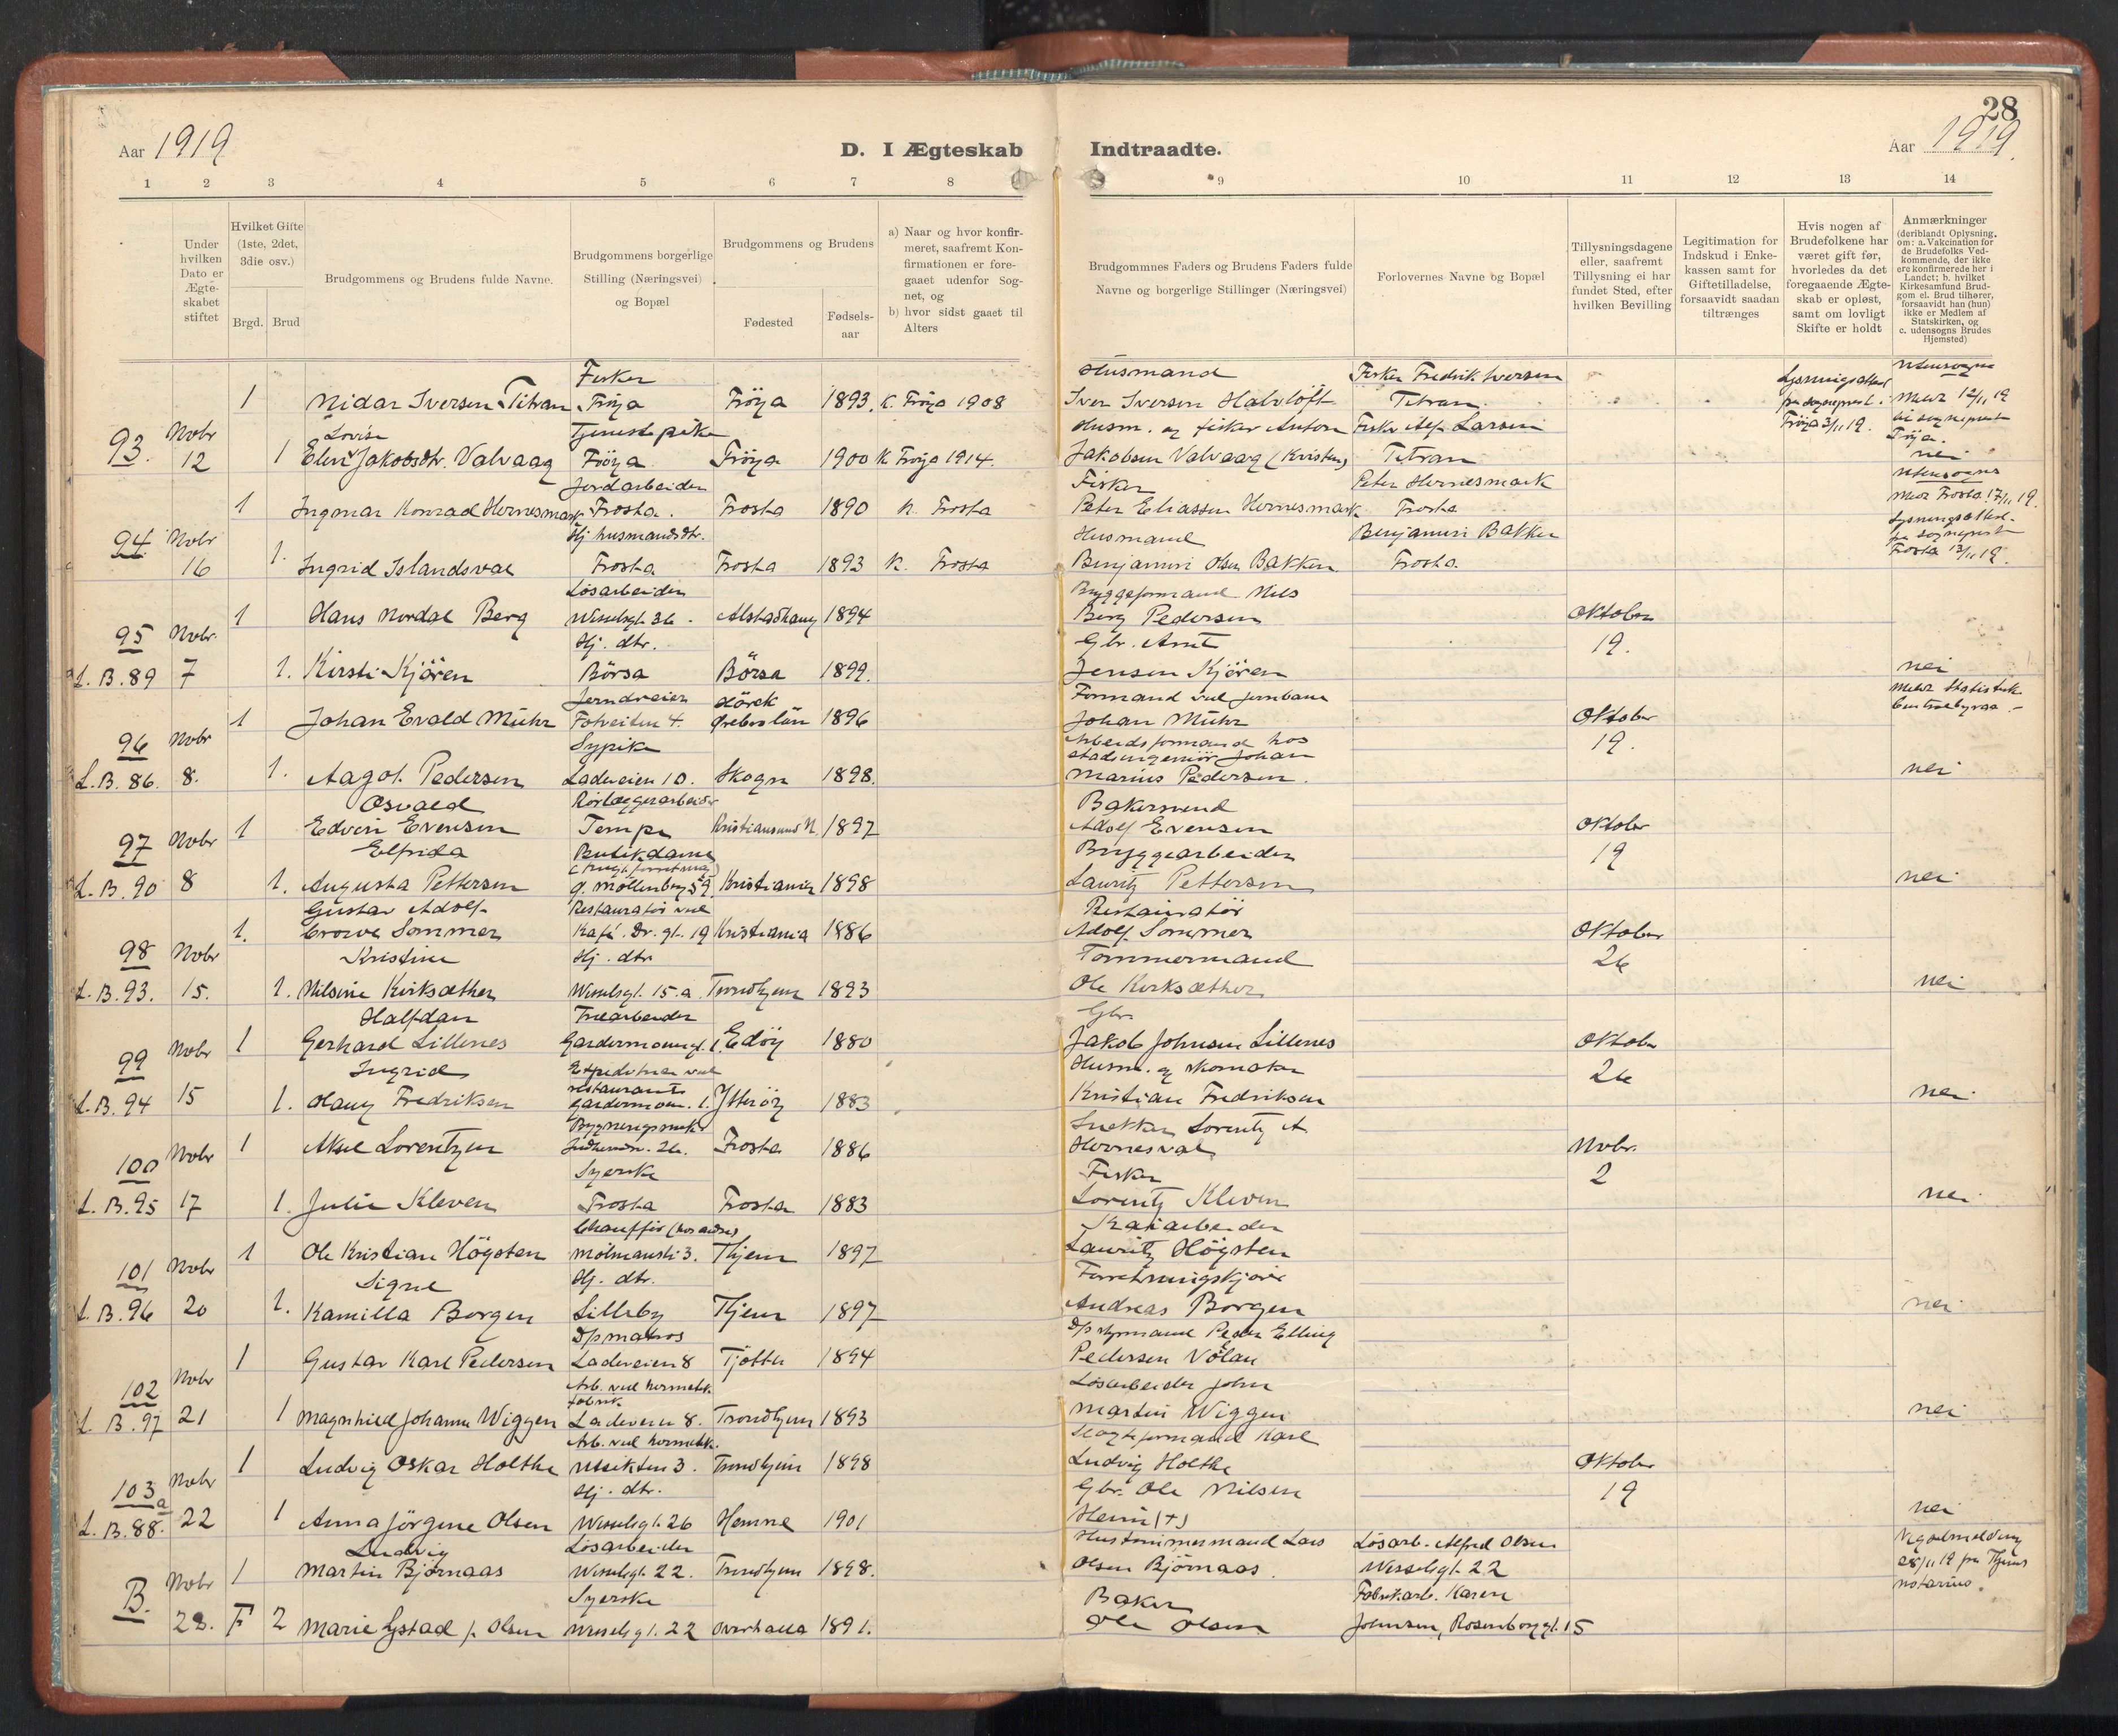 28
Aar 1919
D. I Ægteskab Indtraadte.
Aar 1919.
1 2 3 4 5 6 7 8 9 10 11 12 13 14
Under hvilken Dato er Ægteskabet stiftet
Hvilket Gifte (1ste, 2det, 3die osv.)
Brgd. Brud
Brudgommens og Brudens fulde Navne.
Brudgommens borgerlige Stilling (Næringsvei) og Bopæl
Brudgommens og Brudens
Fødested
Fødselsaar
a) Naar og hvor konfirmeret, saafremt Konfirmationen er foregaaet udenfor Sognet, og
b) hvor sidst gaaet til Alters
Brudgommnes Faders og Brudens Faders fulde Navne og borgerlige Stillinger (Næringsvei)
Forlovernes Navne og Bopæl
Tillysningsdagene eller, saafremt Tillysning ei har fundet Sted, efter hvilken Bevilling
Legitimation for Indskud i Enkekassen samt for Giftetilladelse, forsaavidt saadan tiltrænges
Hvis nogen af Brudefolkene har været gift før, hvorledes da det foregaaende Ægteskab er opløst, samt om lovligt Skifte er holdt
Anmærkninger (deriblandt Oplysning. om: a. Vakcination for de Brudefolks Vedkommende, der ikke ere konfirmerede her i Landet; b. hvilket Kirkesamfund Brudgom el. Brud tilhører, forsaavidt han (hun) ikke er Medlem af Statskirken, og c. udensogns Brudes Hjemsted)
Fisker Husmand Fisker Fredrik Iversen Utensogns
1 Nidar Iversen Titran Frøya Frøya 1893. K. Frøya 1908 Iver Iversen Halvløft Titran. Meldt 12/11 19
93. Nobr Lovise Tjenestepike Husm. og fisker Anton Fisker Alf Larsen Frøya 3/11 19. til sogneprest
12 1 Elen Jakobsdtr. Valvaag Frøya Frøya 1900 K Frøya 1914. Jakobsen Valvaag (Kristen) Titran Frøya. nei
Jordarbeider Fisker Peter Hernesmark Utensogns
1 Ingmar Konrad Hernesmark Frosta. Frosta 1890 K. Frosta Peter Eliassen Hernesmark Frosta Meldt Frosta 17/11 19.
94 Nobr Hj husmandsdtr. Husmand Benjamin Bakken Lysningsattest
16 1. Ingrid Islandsval Frosta Frosta 1893 K. Frosta Benjamin Olsen Bakken Frosta. fra sogneprest Frosta 13/11 19.
Løsarbeider Bryggeformand Nils
1 Hans Nordal Berg Wesselsgt. 36. Alstadhaug 1894 Berg Pedersen Oktober
95 Nobr. Hj. dtr. Gbr. Arnt 19.
L. B. 89 7 1. Kirsti Kjøren Børsa Børsa 1899. Jensen Kjøren nei
Jerndreier Formand ved jernbane Meldt Statistisk
1 Johan Evald Mühr 4. Ørebro län 1896 Johan Mühr Oktober Centralbyraa
96 Nobr Sypike Arbeidsformand hos stadsingeniør Johan 19.
L. B. 86. 8. 1. Aagot Pedersen Ladeveien 10. Skogn 1898. Marius Pedersen. nei
Osvald Rørlæggerarbeider Bakersvend
1 Edvin Evensen Tempe Kristiansund N. 1897 Adolf Evensen Oktober
97 Nobr Elfrida Butikdame Bryggearbeider 19
L. B. 90 8 1. Augusta Pettersen g. Møllenberg 59. Kristiania 1898 Lauritz Pettersen nei
Gustav Adolf Restauratør ved Restauratør
1. Sommer Kafé. Dr. gt. 19 Kristiania 1886 Adolf Sommer Oktober
98 Nobr Kristine Hj. dtr Tømmermand 26
L. B. 93. 15. 1. Nilsine Kirksæther Wesselsgt. 15.a. Trondhjem 1893 Ole Kirksæther nei
Halfdan Træarbeider Gbr
1 Gerhard Lillenes Gardermoensgt. 1. Edøy 1880 Jakob Johnsen Lillenes Oktober
99 Nobr Ingrid restaurant Husm. og skomaker 26
L. B. 94 15 1. Olaug Fredriksen Gardermoen. 1. Ytterøy 1883 Kristian Fredriksen nei
Bygningssnekr Snekker Lorentz A
1 Aksel Lorentzen 26. Frosta 1886 Hernesval Nobr.
100 Nobr Syerske Fisker 2
L. B. 95 17 1. Julie Kleven Frosta Frosta 1883 Lorentz Kleven nei
Chauffør (hos andre) Kaiarbeider
1 Ole Kristian Høgsten 3. Thjem 1897 Lauritz Høgsten
101 Nobr Signe Hj. dtr. Forretningskjører
L. B. 96 20 1. Kamilla Borgen Lilleby Thjem 1897 Andreas Borgen nei
D/p matros D/p styrmand Peder Elling
1 Gustav Karl Pedersen Ladeveien 8 Tjøtta 1894 Pedersen Vølan
102 Nobr Arb. ved hermetik fabrik Løsarbeider John
L. B. 97 21 1 Magnhild Johanne Wiggen Ladeveien 8. Trondhjem 1893 Martin Wiggen nei
Arb. ved hermetik. Karl
1 Ludvig Oskar Holthe Utsikten 3. Trondhjem 1898 Ludvig Holthe Oktober
103 a Nobr Hj. dtr. Gbr. Ole Nilsen 19
L. B. 88. 22 1 Anna Jørgine Olsen Wesselsgt. 26 Hemne 1901 Heim (+) nei
Ludvig Løsarbeider Hustømmermand Lars Løsarb. Alfred Olsen
1 Martin Bjørnaas Wesselsgt. 22. Trondhjem 1898. Olsen Bjørnaas. Wesselsgt. 22 28/11 19 fra Thjems
B. Nobr Syerske Baker Fabrikarb. Karen notarius.
28. F 2 Marie Ystad f. Olsen Wesselsgt. 22 Overhalla 1891. Ole Olsen Johnsen, Rosenborggt. 15